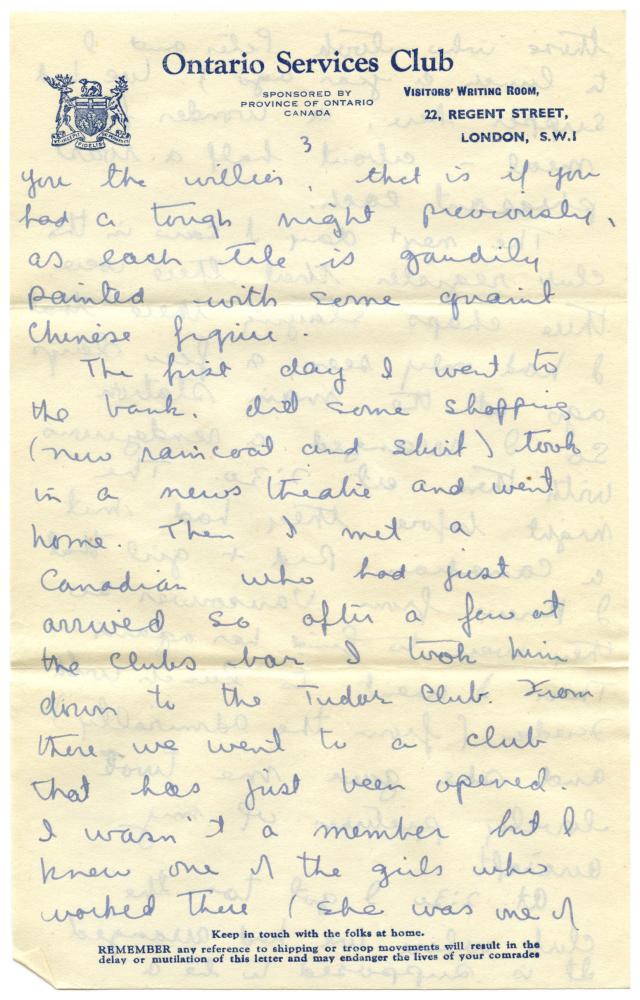 Ontario Services Club
SPONSORED BY
PROVINCE OF ONTARIO
CANADA
VISITORS' WRITING ROOM,
22, REGENT STREET,
LONDON, S.W.1
3
you the willies, that is if you
had a tough night previously,
as each tile is gaudily
painted with some quaint
Chinese figure.
The first day I went to
the bank. did some shopping
(new raincoat and shirt) took
in a news theatre and went
home. Then I met a
Canadian who had just
arrived so after a few at
the clubs bar I took him
down to the Tudor Club. From
there we went to a club
that has just been opened.
I wasn't a member but I
knew one of the girls who
worked there (she was one of
Keep in touch with the folks at home.
REMEMBER any reference to shipping or troop movements will result in the
delay or mutilation of this letter and may endanger the lives of your comrades